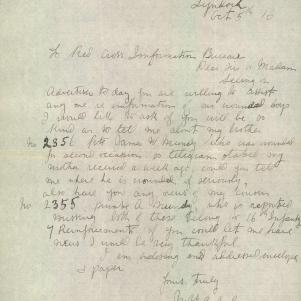 Lyndoch
Oct 5th 16
To Red Cross Information Bureau
Dear Sir or Madam
Seeing in
Advertiser to day you are willing to assist
any one re information of our wounded boys
I would like to ask of you will be so
kind as to tell me about my brother
No 2351 Pte James W who was wounded
for second occasion so telegram stated my
mother received a week ago could you tell
me where he is wounded, if seriously,
also have you any news of my cousin
No 2355 private A who is reported
missing both of those belong to 16th Infantry
7 Reinforcements if you could let me have
news I will be very thankful
I am enclosing and addressed envelope
& paper
Yours truly